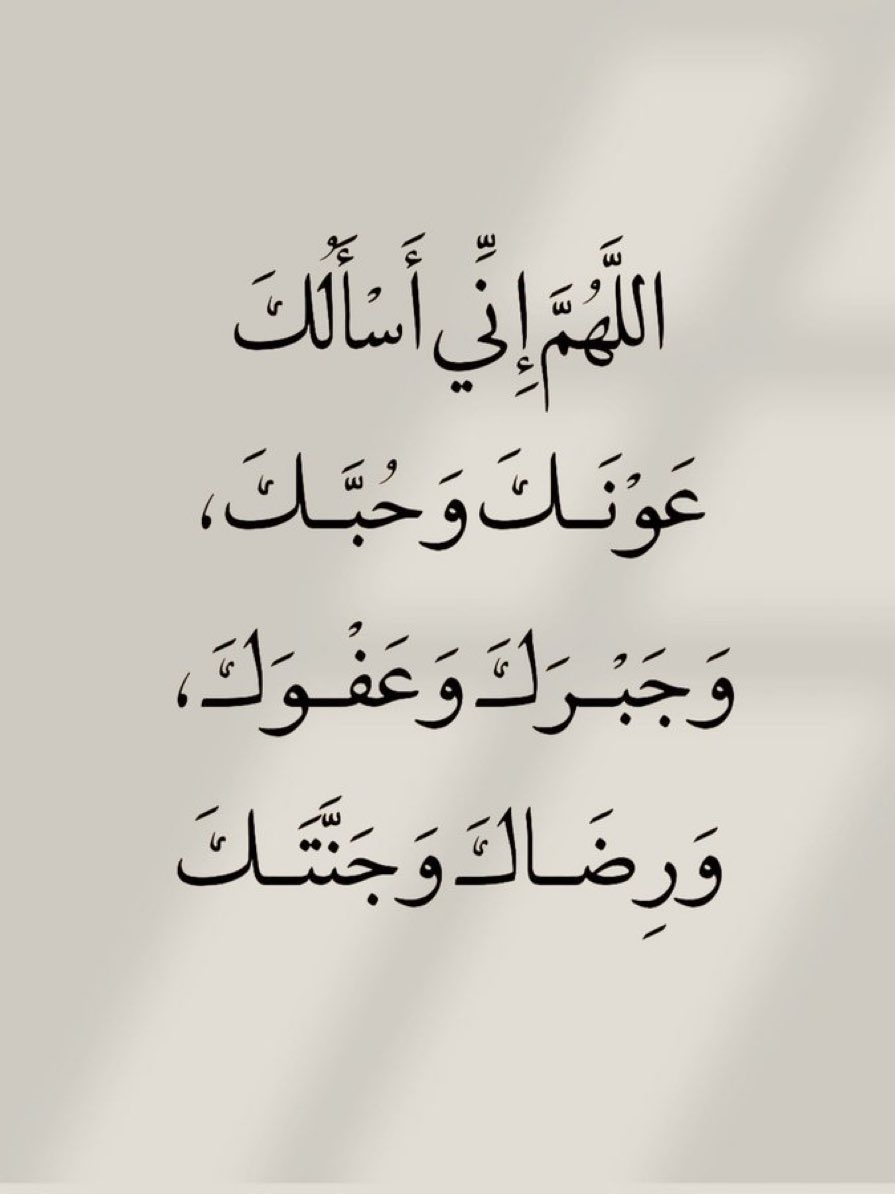 اللَّهُمَّ إِنِّي أَسْأَلُكَ
عَوْنَـكَ وَحُبَّـكَ،
وَجَبْـرَكَ وَعَفْـوَكَ،
وَرِضَـاكَ وَجَنَّتَـكَ